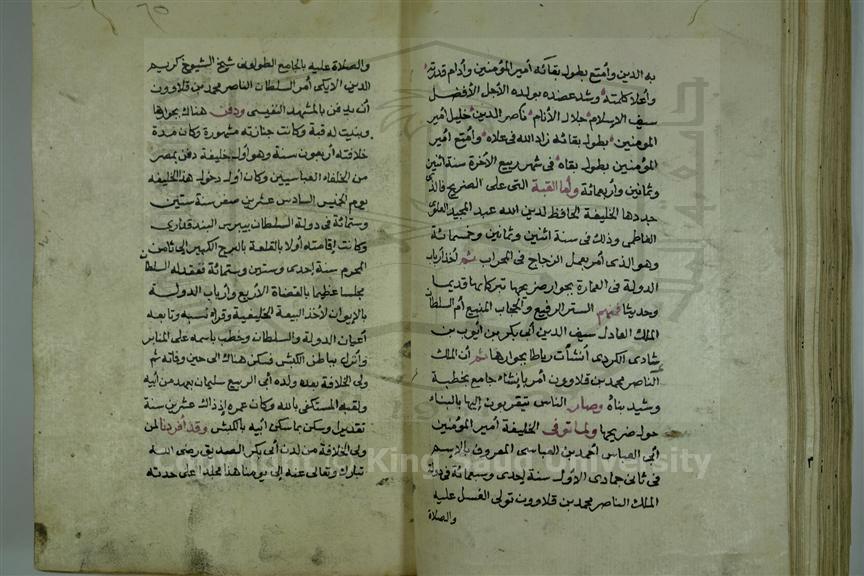 به الدين وأمتع بطول بقائه أمير المؤمنين وأدام قدرته
وأعلا كلمته وشد عضده بولده الأجل الأفضل
سيف الاسلام جلال الأنام ناصر الدين خليل أمير
المومنين بطول بقائه زاد الله في علاه وأمتع أمير
المؤمنين بطول بقاه في شهر ربيع الأخرة سنة اثنين
وثمانين وأربعمائة وأما القبة التي على الضريح فالذي
جددها الخليفة الحافظ لدين الله عبد المجيد العلوي
الفاطمي وذلك في سنة اثنين وثمانين وخمسمائة
وهو الذي أمر بعمل الزجاج في المحراب ثم أخذ أرباب
الدولة في العمارة بجوار ضريحها تبركا بها قديما
وحديثا فمنهم الستر الرفيع والحجاب المنيع أم السلطان
الملك العادل سيف الدين أبي بكر بن أيوب بن
شادى الكردى أنشأت رباطا بجوارها ثم أن الملك
الناصر محمد بن قلاوون أمر بإنشاء جامع بخطبة
وشيد بناه وصار الناس يتقربون إليها بالبناء
حول ضريحها ولما توفى الخليفة أمير المؤمنين
أبي العباس أحمد بن العباسي المعروف بالاسمر
في ثاني جمادى الأول سنة إحدى وسبعمائة في دولة
الملك الناصر محمد بن قلاوون تولى الغسل عليه
والصلاة
والصلاة عليه بالجامع الطولونى شيخ الشيوخ كريم
الدين الايكى أمر السلطان الناصر محمد بن قلاوون
أن يدفن بالمشهد النفيسي ودفن هناك بجوارها
وبنيت له قبة وكانت جنازته مشهورة وكان مدة
خلافته أربعون سنة وهو أول خليفة دفن بمصر
من الخلفاء العباسيين وكان أول دخول هذا الخليفه
يوم الخميس السادس عشرين صفر سنة ستين
وستمائة في دولة السلطان بيبرس البندقداري
وكانت إقامته أولا بالقلعة بالبرج الكبير إلى ثامن
المحرم سنة إحدى وستين وستمائة فعقد له السلطان
مجلسا عظيما بالقضاة الأربع وأرباب الدولة
بالإيوان لأخذ البيعة الخليفية وقراه نسبه وتابعه
أعيان الدولة والسلطان وخطب باسمه على المنابر
وأنزل بباطن الكبش فسكن هناك الى حين وفاته ثم
ولى الخلافة بعده ولده أبي الربيع سليمان بعهد من أبيه
ولقبه المستكفى بالله وكان عمره إذ ذاك عشرين سنة
تقديرا وسكن بمسكن أبيه بالكبش وقد أفردنا لمن
ولى الخلافة من لدن أبي بكر الصديق رضى الله
تبارك وتعالى عنه إلى يومنا هذا مجلدا على حدته
King Saud University